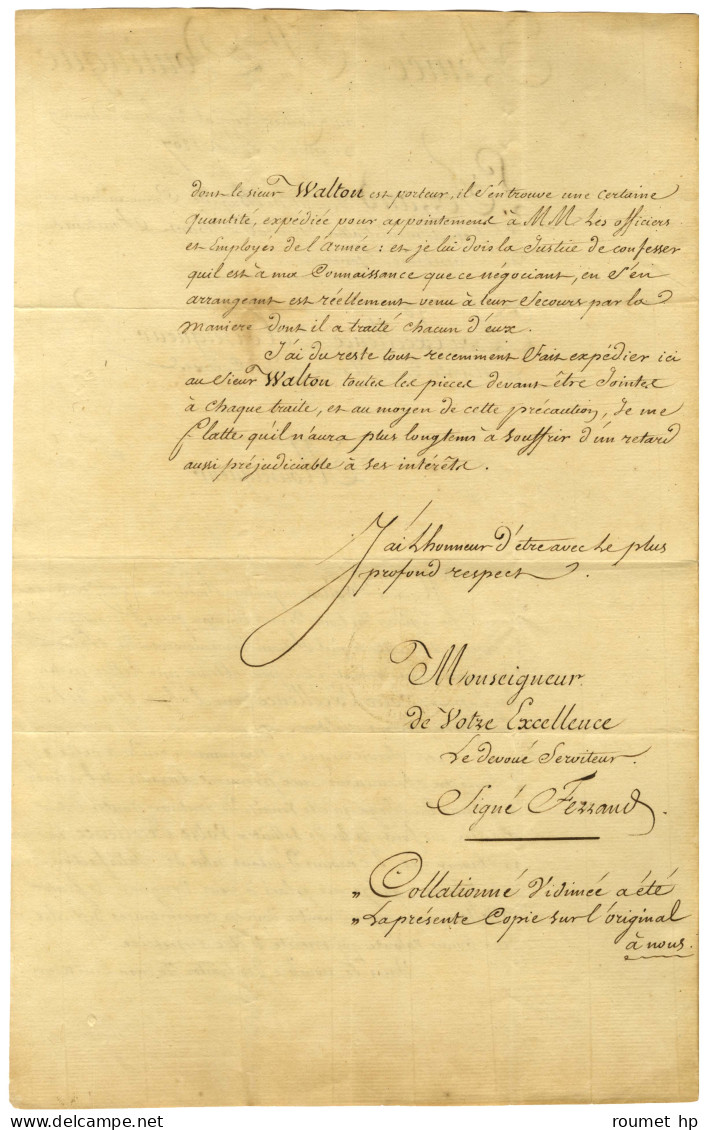 dont le sieur Walton est porteur, il s'en trouve une certaine
quantité, expédiée pour appointemens à MM les officiers
et Employés de l'Armée : et je lui dois la Justice de confesser
quil est à ma Connaissance que ce négociant, en s'en
arrangeant est réellement venu à leur secours par la
maniere dont il a traité chacun d'eux.
J'ai du reste tout recemment fait expédier ici
au sieur Walton toutes les pieces devant être Jointes
à chaque traite, et au moyen de cette précaution, Je me
flatte qu'il n'aura plus longtems à souffrir d'un retard
aussi préjudiciable à ses intérêts.
J'ai Lhonneur d'etre avec le plus
profond respect.
Monseigneur
de Votre Excellence
Le devoué Serviteur.
Signé Ferrand.
" Collationné Vidimée a été
" La présente Copie sur l'original
à nous.
roumet hp